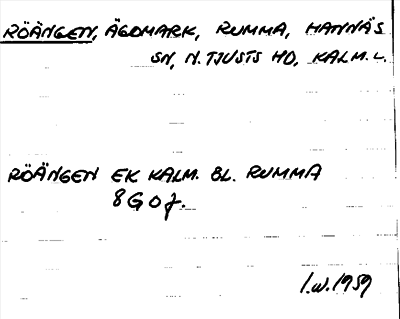 RÖÄNGEN, ÄGOMARK, RUMMA, HANNÄS
SN, N. TJUSTS HD, KALM. L.
RÖÄNGEN EK KALM. BL. RUMMA
8G0j.
I.W. 1959